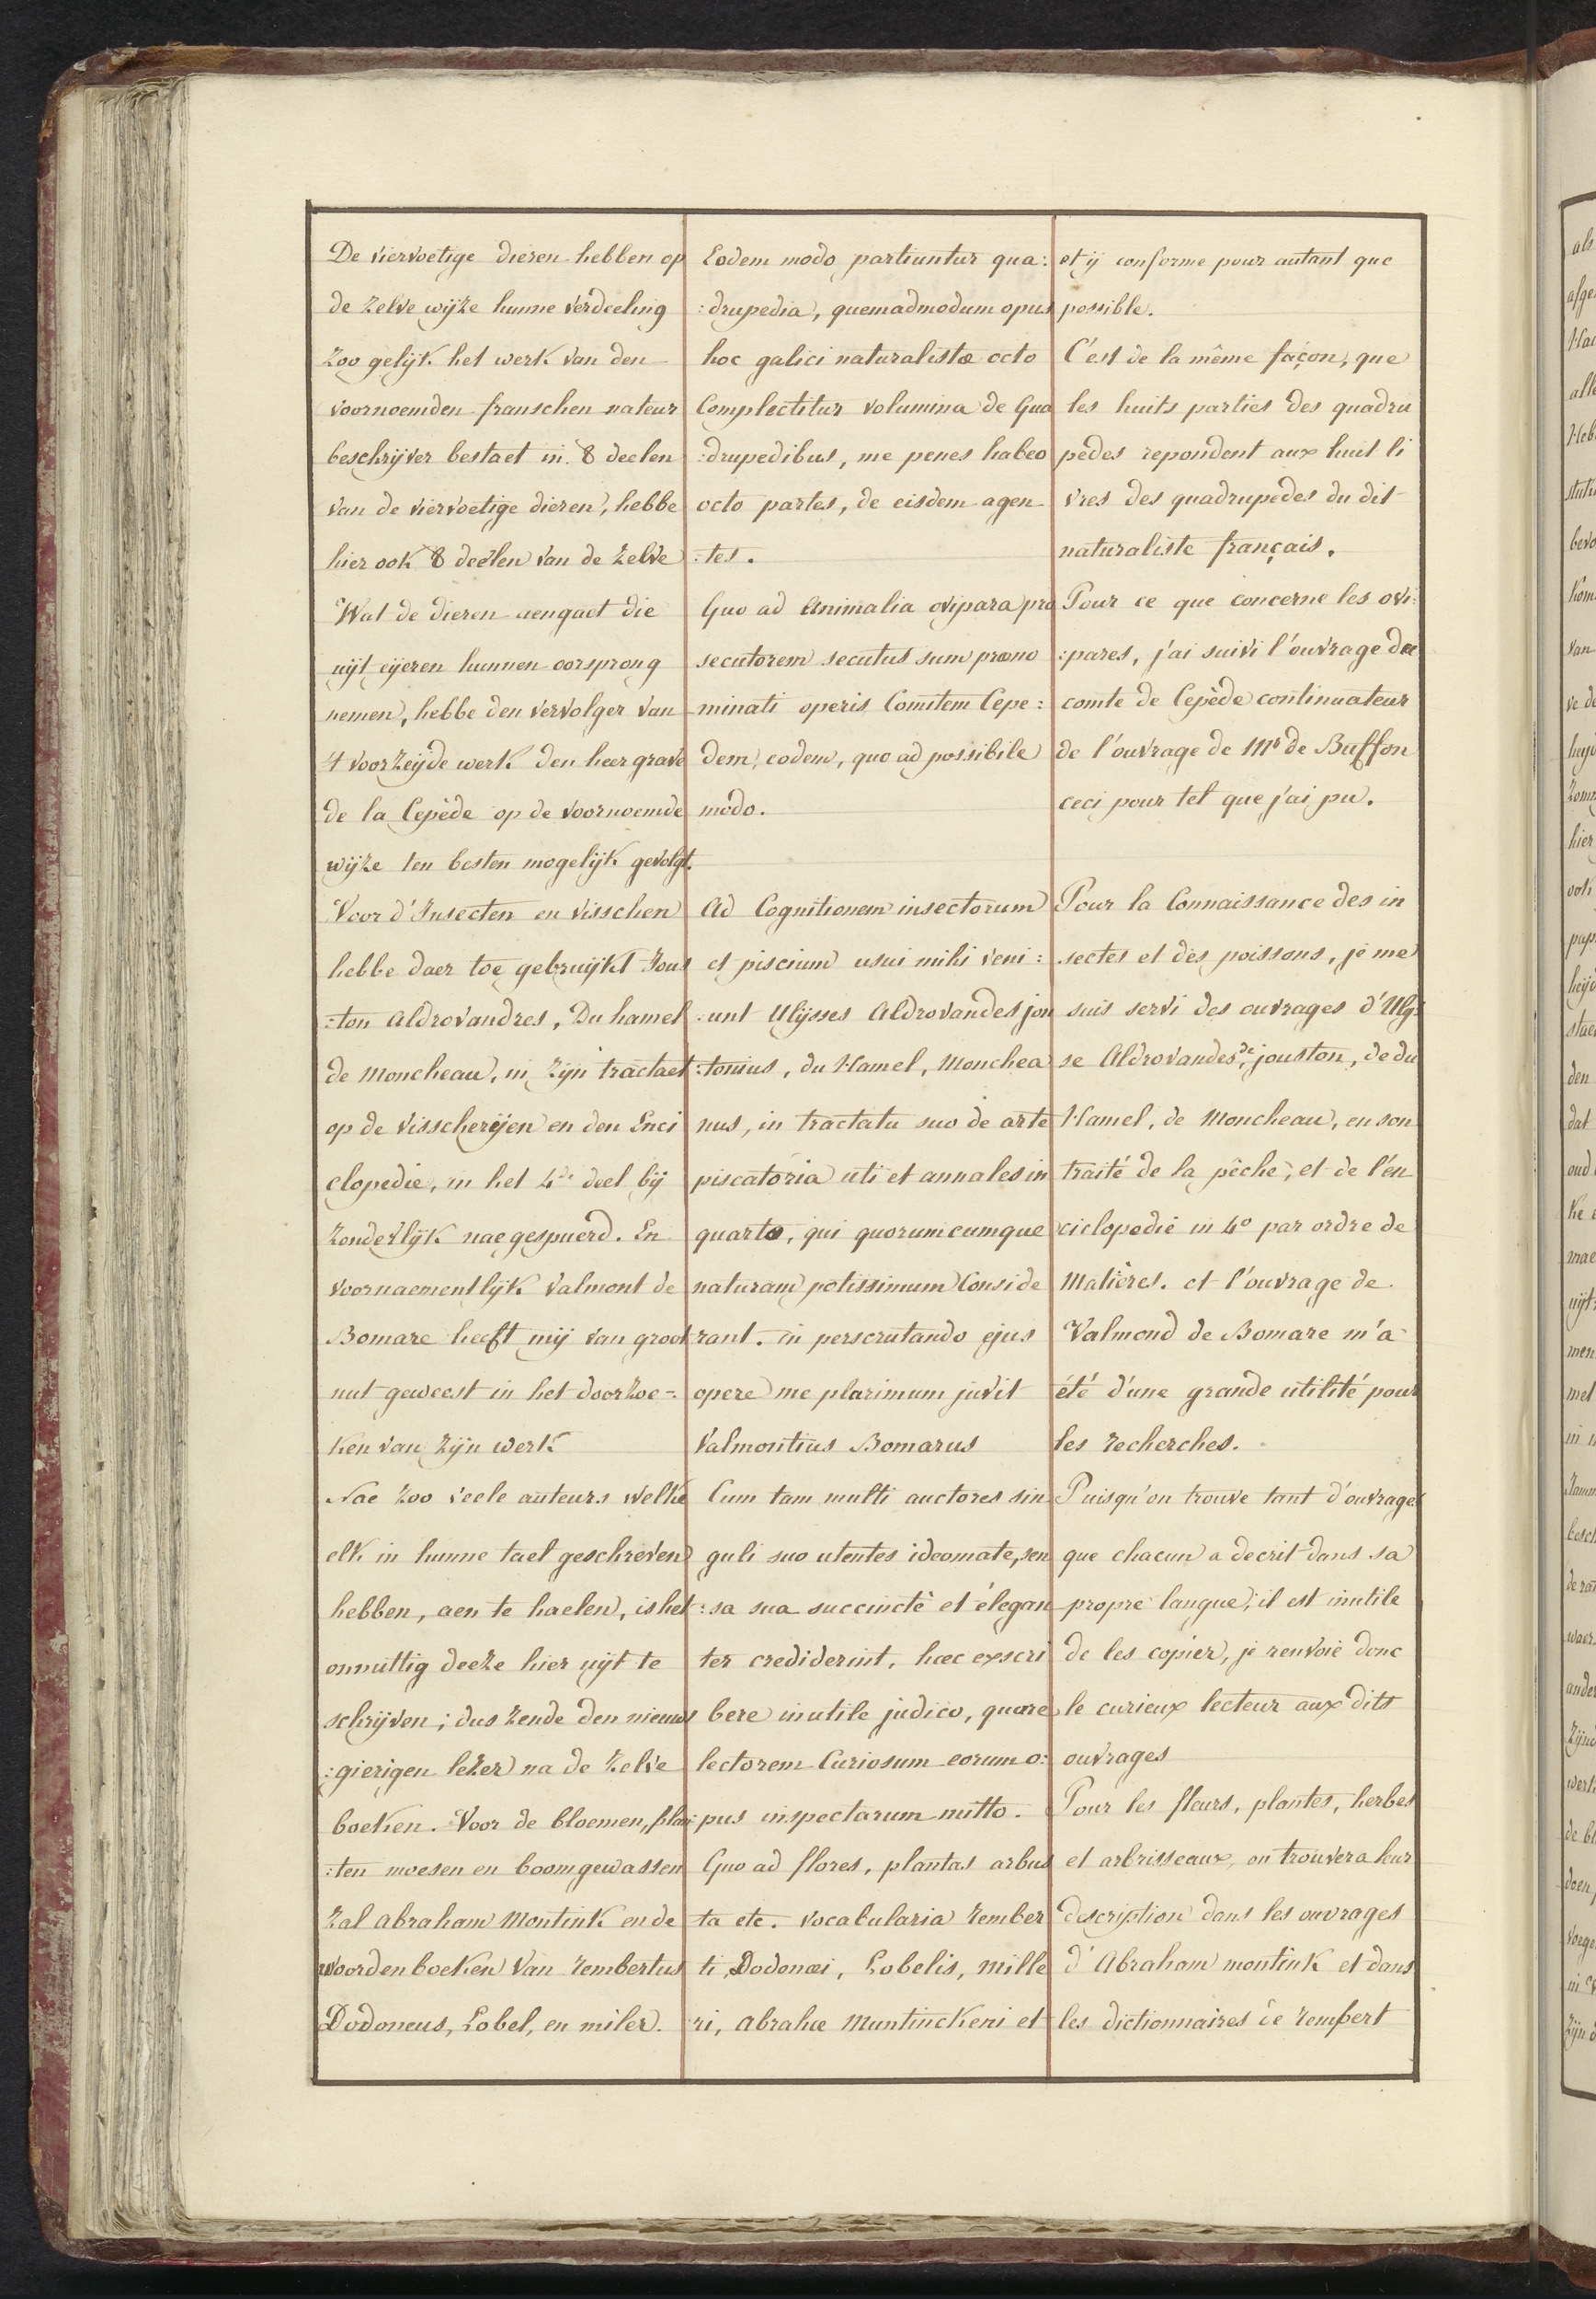 De viervoetige dieren hebben op
de zelve wijze hunne verdeeling
zoo gelijk het werk van den
voornoemden franschen nateur
beschrijver bestaet in 8 deelen
van de viervoetige dieren, hebbe
hier ook 8 deelen van de zelve
Wat de dieren aengaet die
uijt eijeren hunnen oorsprong
nemen, hebbe den vervolger van
't voorzeijde werk den heer grave
de la Cepède op de voornoemde
wijze ten besten mogelijk gevolgt.
Voor d'Insecten en visschen
hebbe daer toe gebruijkt Jous
:ton Aldrovandres, Du hamel
de Moncheau, in zijn tractaet
op de visscherijen en den Enci
clopedie, in het 4de deel bij
zonderlijk naegespuerd. En
voornaementlijk Valmont de
Bomare heeft mij van groot
nut geweest in het doorzoe-:
ken van zijn werk
Nae zoo veele auteurs welke
elk in hunne tael geschreven
hebben, aen te haelen, is het
onnuttig deeze hier uijt te
schrijven; dus zende den nieuws
:gierigen lezer na de zelve
boeken. Voor de bloemen, plan
:ten moesen en boomgewassen
zal Abraham Montink en de
woordenboeken van rembertus
Dodoneus, Lobel, en miler.
Eodem modo partiuntur qua:
:drupedia, quemadmodum opus
hoc galici naturalistæ octo
Complectitur volumina de Qua
:drupedibus, me penes habeo
octo partes, de eisdem agen
:tes.
Quo ad Animalia ovipara pro
secutorem secutus sum præno
minati operis Comitem Cepe:
dem, eodem, quo ad possibile
modo.
Ad Cognitionem insectorum
et piscium usui mihi veni:
:unt Ulijsses Aldrovandes jon
:tonius, du Hamel, Monchea
nus, in tractatu suo de arte
piscatoria uti et annales in
quarto, qui quorumcumque
naturam potissimum Conside
rant. in perscrutando ejus
opere me plurimum juvit
Valmontius Bomarus
Cum tam multi auctores sin
guli suo utentes ideomate, sen
:sa sua succinctè et élegan
ter crediderint, hæc exscri
bere inutile judico, quare
lectorem Curiosum eorum o:
pus inspectarum mitto.
Quo ad flores, plantas arbus
ta etc. vocabularia rember
ti, Dodonæi, Lobelis, Mille
ri, Abrahæ Muntinckeni et
et ij conforme pour autant que
possible.
C'est de la même façon, que
les huits parties des quadru
pèdes repondent aux huit li
vres des quadrupèdes du dit
naturaliste français.
Pour ce que concerne les ovi:
:pares, j'ai suivi l'ouvrage du
comte de Cepède continuateur
de l'ouvrage de Mr de Buffon
ceci pour tel que j'ai pu.
Pour la Connaissance des in
sectes et des poissons, je me
suis servi des ouvrages d'Ulij
se Aldrovandes, de jouston, de du
Hamel, de Moncheau, en son
traité de la pêche, et de l'en
ciclopedie in 4o par ordre de
Matières. et l'ouvrage de
Valmond de Bomare m'a
été d'une grande utilité pour
les recherches.
Puisqu'on trouve tant d'ouvrages
que chacun a decrit dans sa
propre langue, il est inutile
de les copier, je renvoie donc
le curieux lecteur aux dits
ouvrages
Pour les fleurs, plantes, herbes
et arbrisseaux, on trouvera leur
description dans les ouvrages
d'Abraham montink et dans
les dictionnaires de rembert